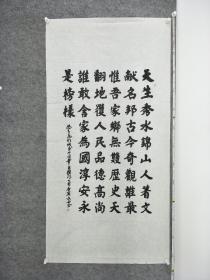 天生秀水錦山人著文
献名邦古今奇觀誰最
惟吾家鄉無雙歷史天
翻地覆人民品德高尚
誰敢舍家為國淳安永
是榜樣